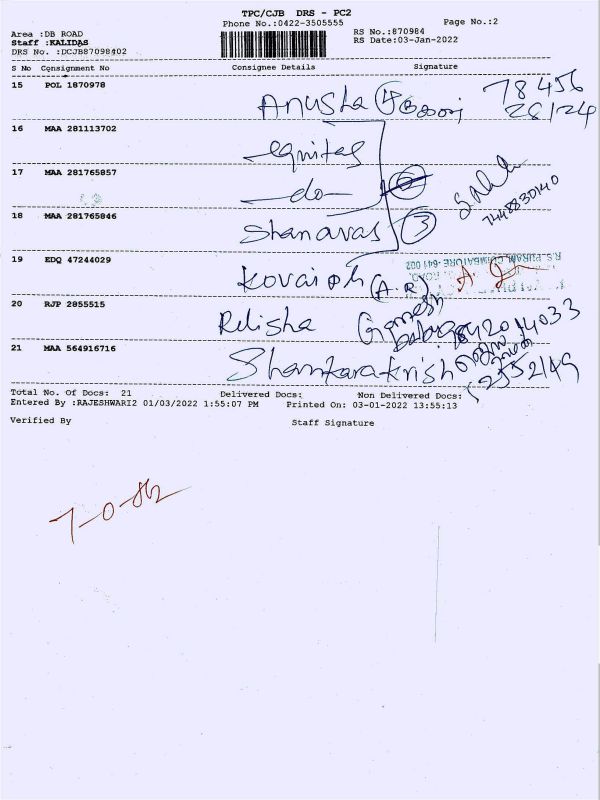 TPC/CJB DRS - PC2
Phone No.:0422-3505555 Page No.:2
Area :DB ROAD RS No.:870984
Staff :KALIDAS RS Date:03-Jan-2022
DRS No. :DCJB87098402
S No Consignment No Consignee Details Signature
15 POL 1870978
Anusha 78 456
28124
16 MAA 281113702
equitas
17 MAA 281765857
-do-
7448830140
18 MAA 281765846
Shanavas 3
19 EDQ 47244029
R.S. PURAM, COIMBATORE-641 002
Kovai ph (A.R)
20 RJP 2855515
Relisha Ganesh
21 MAA 564916716
Shankara Krish
2552149
Total No. Of Docs: 21 Delivered Docs: Non Delivered Docs:
Entered By :RAJESHWARI2 01/03/2022 1:55:07 PM Printed On: 03-01-2022 13:55:13
Verified By Staff Signature